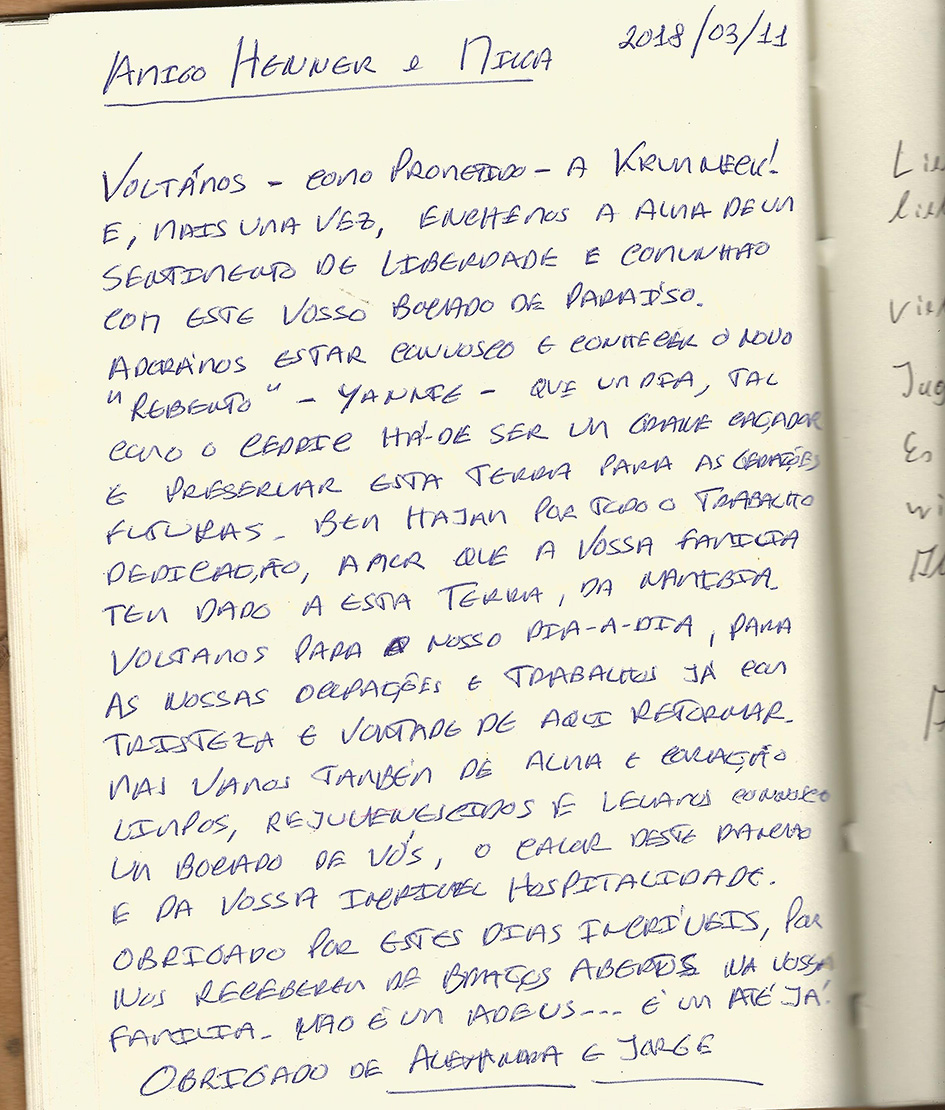 AMIGO HENNER e MILLA 2018/03/11
VOLTÁMOS - COMO PROMETIDO - A KRUMNECK!
E, MAIS UMA VEZ, ENCHEMOS A ALMA DE UM
SENTIMENTO DE LIBERDADE E COMUNHÃO
COM ESTE VOSSO BOCADO DE PARAÍSO.
ADORÁMOS ESTAR CONVOSCO E CONHECER O NOVO
"REBENTO" - YANNIC - QUE UM DIA, TAL
COMO O CEDRIC HÁ-DE SER UM GRANDE CAÇADOR
E PRESERVAR ESTA TERRA PARA AS GERAÇÕES
FUTURAS. BEM HAJAM POR TODO O TRABALHO
DEDICAÇÃO, AMOR QUE A VOSSA FAMILIA
TEM DADO A ESTA TERRA, DA NAMIBIA.
VOLTAMOS PARA O NOSSO DIA-A-DIA, PARA
AS NOSSAS OCUPAÇÕES E TRABALHOS JÁ COM
TRISTEZA E VONTADE DE AQUI RETORNAR.
MAS VAMOS TAMBÉM DE ALMA E CORAÇÃO
LIMPOS, REJUVENESCIDOS E LEVAMOS CONNOSCO
UM BOCADO DE VÓS, O CALOR DESTE
E DA VOSSA INCRIVEL HOSPITALIDADE.
OBRIGADO POR ESTES DIAS INCRÍVEIS, POR
NOS RECEBEREM DE BRAÇOS ABERTOS NA VOSSA
FAMILIA. NÃO É UM ADEUS... É UM ATÉ JÁ!
OBRIGADO DE ALEXANDRA E JORGE
Lie
lie
Vie
Jug
Es
wi